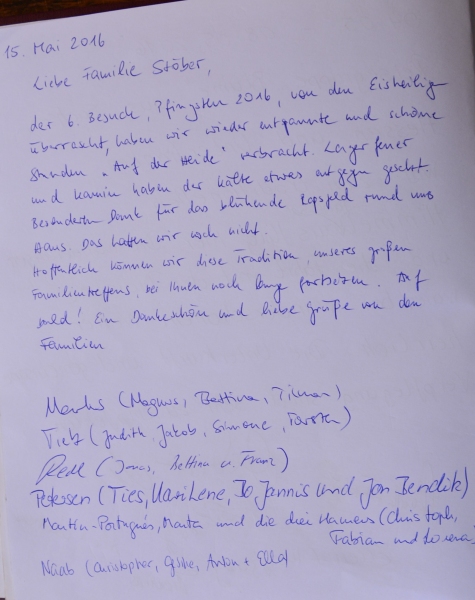 15. Mai 2016
Liebe Familie Stöber,
der 6. Besuch, Pfingsten 2016, von den Eisheiligen
überrascht, haben wir wieder entspannte und schöne
Stunden "Auf der Heide" verbracht. Lagerfeuer
und Kamin haben der Kälte etwas entgegen gesetzt.
Besonderen Dank für das blühende Rapsfeld rund ums
Haus. Das hatten wir noch nicht.
Hoffentlich können wir diese Tradition, unseres großen
Familientreffens, bei Ihnen noch lange fortsetzen. Auf
bald! Ein Dankeschön und liebe Grüße von den
Familien
(Magnus, Bettina, Tilman)
Tietz (Judith, Jakob, Simone, Torsten)
(Jonas, Bettina u. Franz)
Petersen (Ties, Marilene, Bo Jannis und Jon Bendik)
Martin-Portugues, Marta und die drei Hamens (Christoph,
Fabian und Lorena)
Naab (Christopher, Anton + Ella)